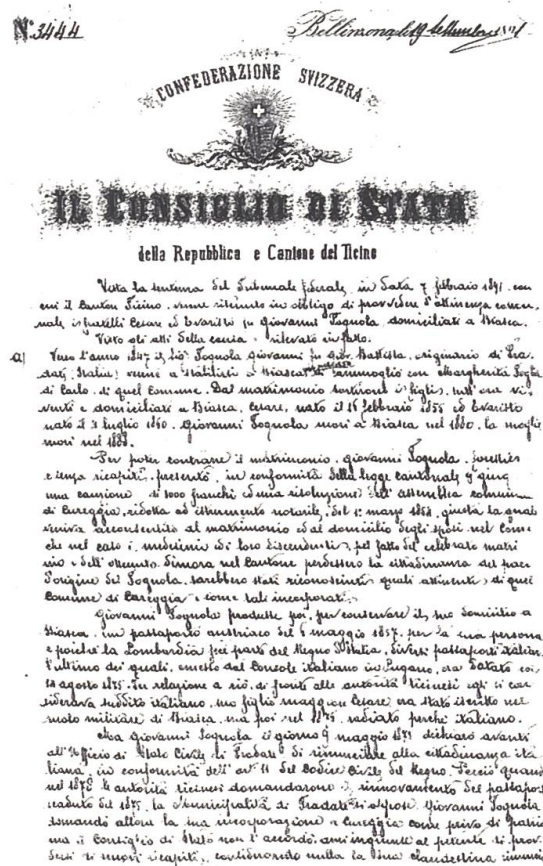 N.° 3444
Bellinzona, li 19 Settembre 1891
CONFEDERAZIONE SVIZZERA
IL CONSIGLIO DI STATO
della Repubblica e Cantone del Ticino
Vista la sentenza del Tribunale federale in data 7 febbraio 1891 con
cui il Canton Ticino venne ritenuto in obbligo di provvedere d'attinenza comu-
nale i fratelli Cesare ed Evaristo fu Giovanni Tognola domiciliati a Biasca.
Visto gli atti della causa e rilevato in fatto:
a) Verso l'anno 1847 il Tognola Giovanni fu Gio. Battista, originario di Tra-
date, Italia, venne a stabilirsi a Biasca ammogliò con Margherita
di Carlo, di quel Comune. Dal matrimonio sortirono i figli, tutt'ora vi-
venti e domiciliati a Biasca, Cesare, nato il 16 febbraio 1855 ed Evaristo
nato il 3 luglio 1860. Giovanni Tognola morì a Biasca nel 1880, la moglie
morì nel 1888.
Per poter contrarre il matrimonio, Giovanni Tognola, forestiero
e senza ricapiti, presentò, in conformità della legge cantonale
una cauzione di 1000 franchi ed una risoluzione dell'assemblea comunale
di Cureggia, ridotta ad istrumento notarile, del 1.° marzo giusta la quale
veniva acconsentito al matrimonio ed al domicilio degli sposi nel Comune
che nel caso i medesimi ed i loro discendenti, pel fatto del celebrato matri
nio e dell'ottenuta dimora nel Cantone perdessero la cittadinanza del paese
d'origine del Tognola, sarebbero stati riconosciuti quali attinenti di quel
Comune di Cureggia e come tali incorporati.
Giovanni Tognola produsse poi, per conservare il suo domicilio a
Biasca, un passaporto austriaco del 6 maggio 1857, per la sua persona
e poichè la Lombardia fece parte del Regno d'Italia, diversi passaporti italiani
l'ultimo dei quali, emesso dal Console italiano in Lugano, era datato
14 agosto 1875. In relazione a ciò, di fronte alle autorità ticinesi egli si con
siderava suddito italiano, suo figlio maggiore Cesare era stato iscritto nel
ruolo militare di Biasca, ma poi nel 1875 radiato perchè italiano.
Ma Giovanni Tognola il giorno 9 maggio 1871 dichiarò avanti
all'Officio di Stato Civile di Tradate di rinunciare alla cittadinanza ita
liana, in conformità dell'art. 11 del Codice Civile del Regno. Perciò quando
nel 1878 le autorità ticinesi domandarono il rinnovamento del passaporto
scaduto del 1875, la Municipalità di Tradate si oppose. Giovanni Tognola
domandò allora la sua incorporazione a Cureggia come privo di patria
ma il Consiglio di Stato non l'accordò, anzi ingiunse al petente di prov
dersi di nuovi ricapiti, considerando nulla la sua clandestina